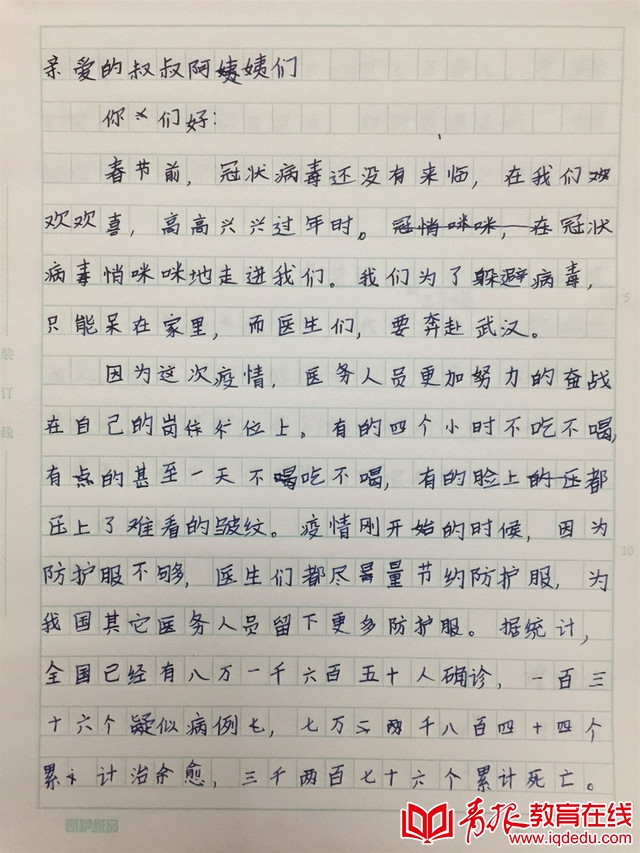 亲爱的叔叔阿姨们
你们好：
春节前，冠状病毒还没有来临，在我们
欢欢喜，高高兴兴过年时。冠悄咪咪，在冠状
病毒悄咪咪地走进我们。我们为了躲避病毒，
只能呆在家里，而医生们，要奔赴武汉。
因为这次疫情，医务人员更加努力的奋战
在自己的岗位上。有的四个小时不吃不喝，
有的甚至一天不吃不喝，有的脸上都
压上了难看的皱纹。疫情刚开始的时候，因为
防护服不够，医生们都尽量节约防护服，为
我国其它医务人员留下更多防护服。据统计，
全国已经有八万一千六百五十人确诊，一百三
十六个疑似病例，七万两千八百四十四个
累计治愈，三千两百七十六个累计死亡。
装订线
5
10
青报教育在线
www.iqdedu.com